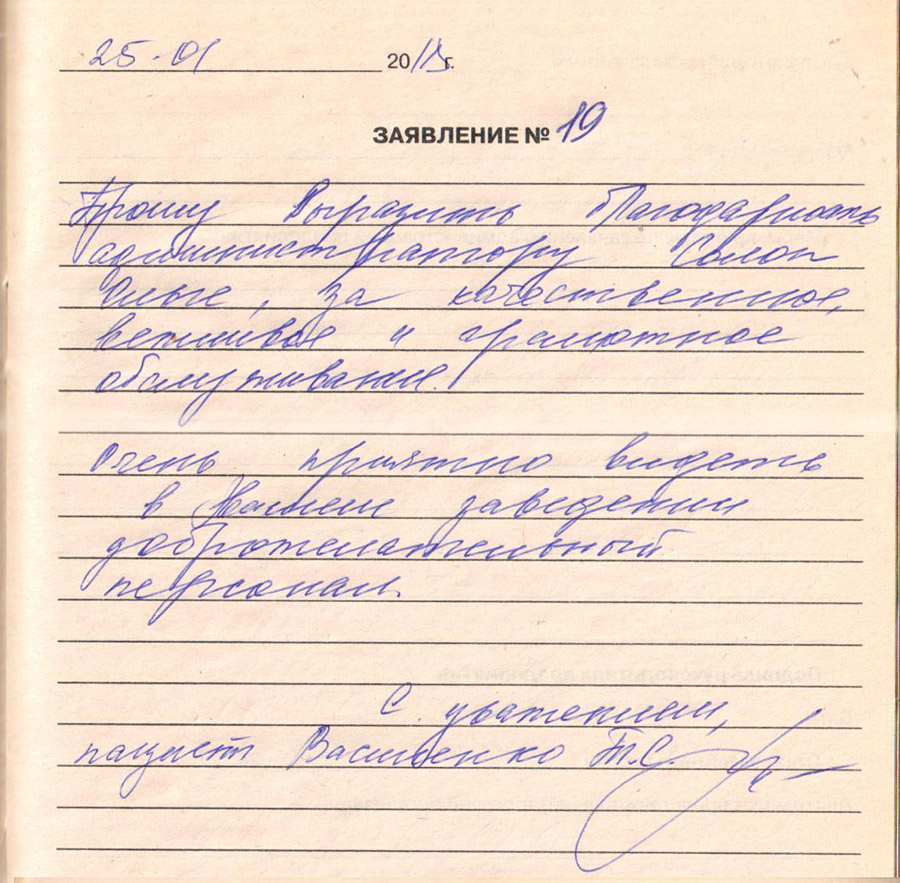 25-01 20 г.
ЗАЯВЛЕНИЕ № 19
Прошу Выразить благодарность
администратору Солоп
Ользе, за качественное,
вежливое и грамотное
обслуживание.
Очень приятно видеть
в Нашем заведении
доброжелательный
персонал.
С уважением,
пациент Василенко Т.С.